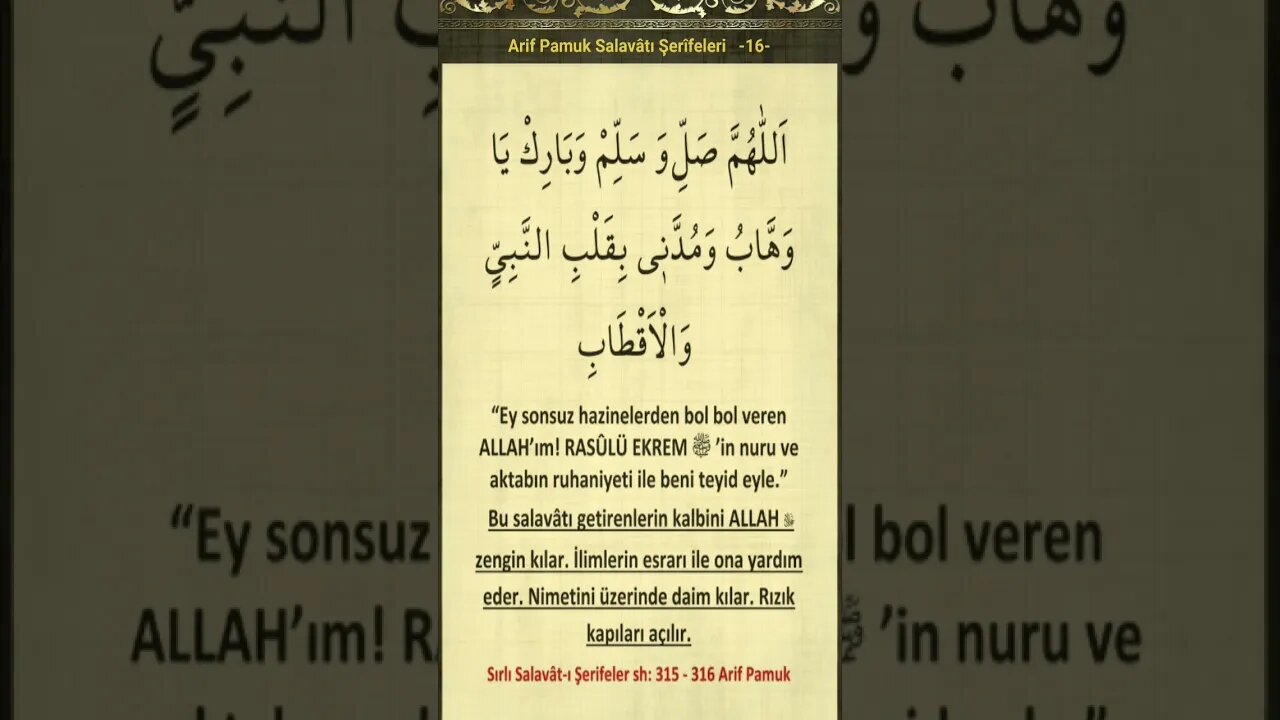 Arif Pamuk Salavâtı Şerîfeleri -16-
اَللّٰهُمَّ صَلِّ وَ سَلِّمْ وَبَارِكْ يَا
وَهَّابُ وَمُدَّنٖى بِقَلْبِ النَّبِيِّ
وَالْاَقْطَابِ
“Ey sonsuz hazinelerden bol bol veren
ALLAH’ım! RASÛLÜ EKREM ﷺ ’in nuru ve
aktabın ruhaniyeti ile beni teyid eyle.”
Bu salavâtı getirenlerin kalbini ALLAH
zengin kılar. İlimlerin esrarı ile ona yardım
eder. Nimetini üzerinde daim kılar. Rızık
kapıları açılır.
Sırlı Salavât-ı Şerifeler sh: 315 - 316 Arif Pamuk